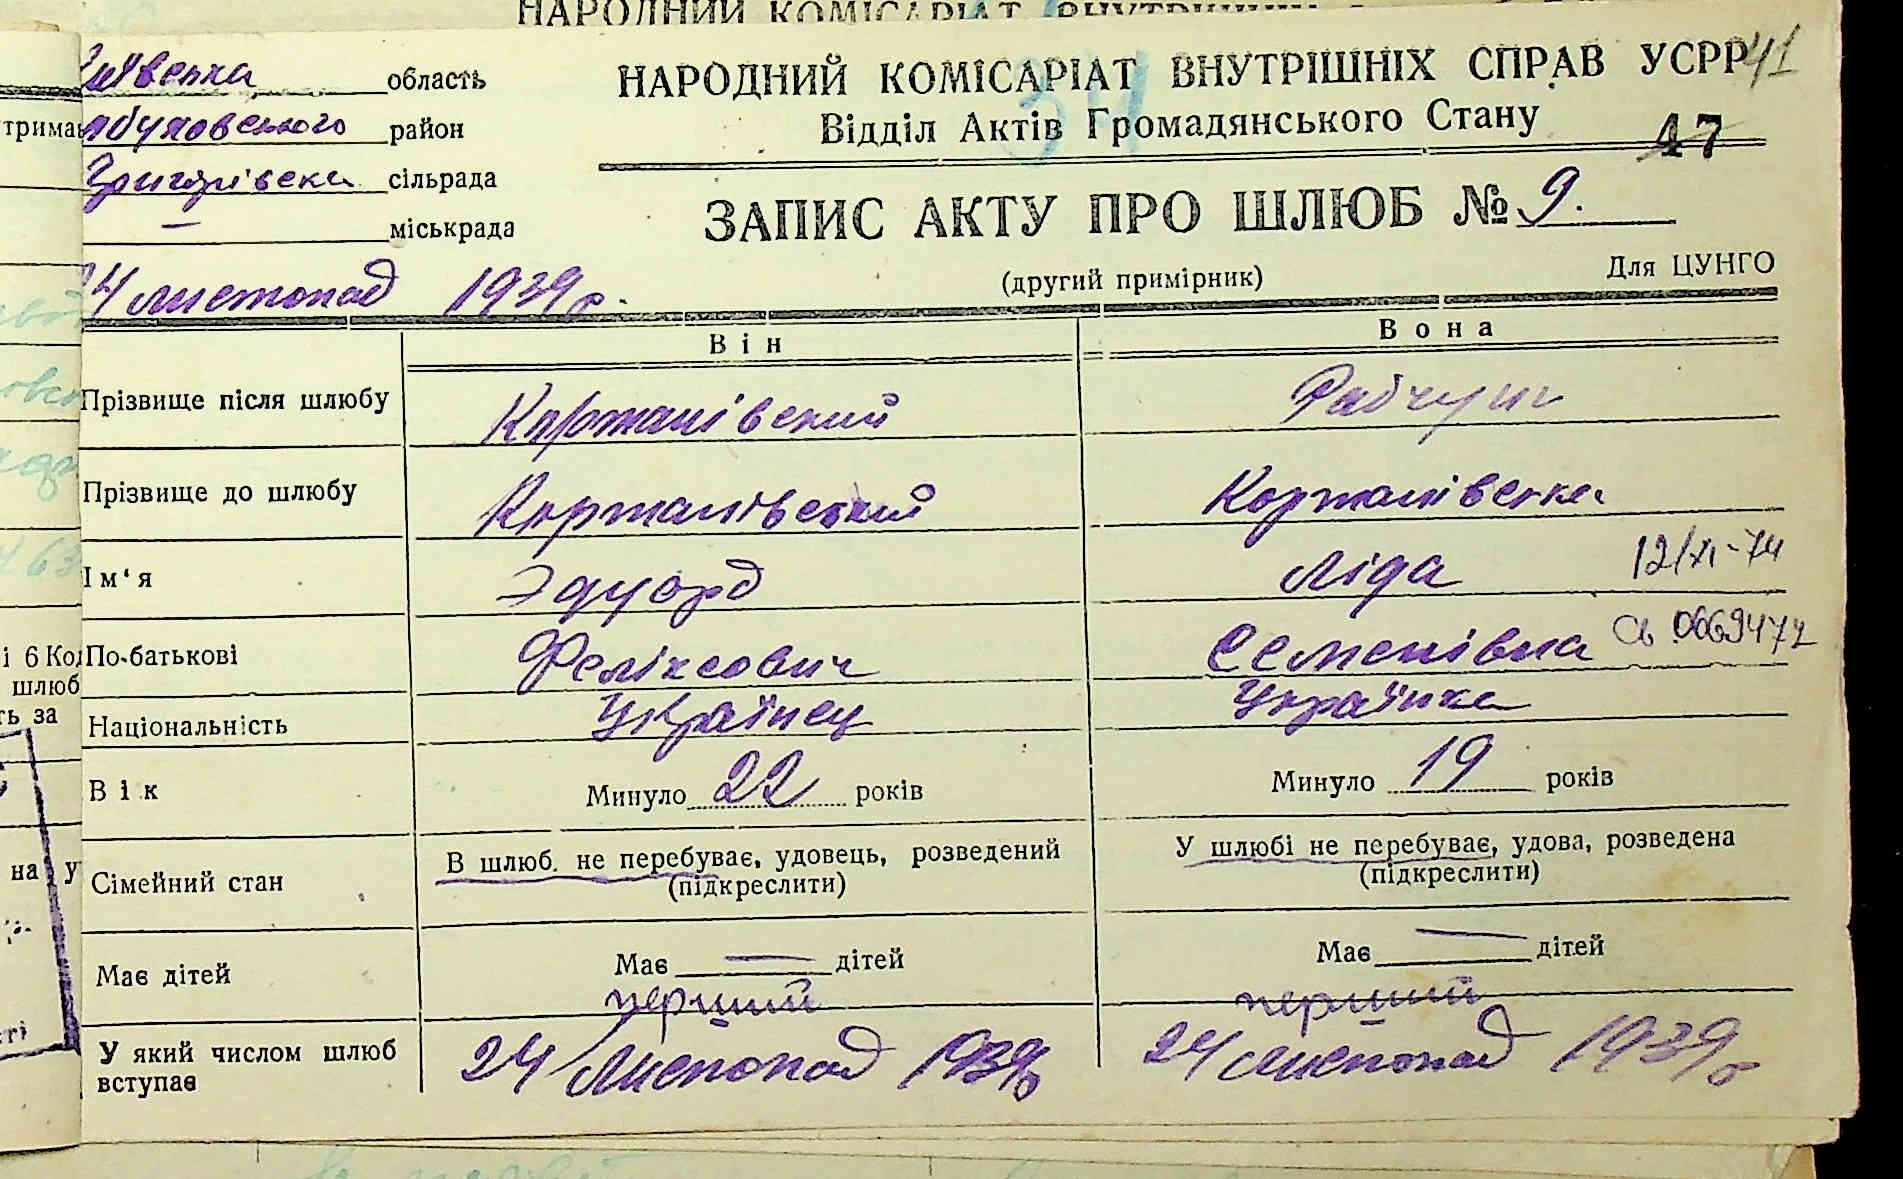 область
район
Григорівська сільрада
міськрада
НАРОДНИЙ КОМІСАРІАТ ВНУТРІШНІХ СПРАВ УСРР
41
34
Відділ Актів Громадянського Стану
47
ЗАПИС АКТУ ПРО ШЛЮБ № 9.
(другий примірник)
Для ЦУНГО
24 листопад 1939 р.
Він
Вона
Прізвище після шлюбу Коржанівский
Прізвище до шлюбу Коржанівский Коржанівска
Ім'я Эдуард Ліда 12/XI-74
По-батькові Феліксович Семенівна
Національність Українец Українка
Вік Минуло 22 років Минуло 19 років
Сімейний стан В шлюб. не перебуває, удовець, розведений У шлюбі не перебуває, удова, розведена
(підкреслити) (підкреслити)
Має дітей Має — дітей Має — дітей
перший перший
У який числом шлюб вступає 24 Листопад 1939 р 24 Листопад 1939 р